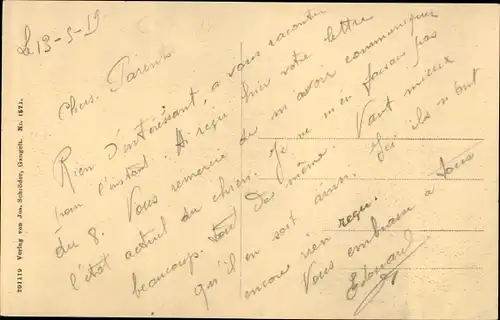 Le 13-5-19
Chers Parents
Rien d'intéressant, a vous raconter
pour l'instant. Ai reçu hier votre lettre
du 8. Vous remercie de m'avoir communiqué
l'état actuel du chien. Je ne m'en faisais pas
beaucoup. Tout de même. Vaut mieux
qu'il en soit ainsi. Ici ils n'ont
encore rien reçu.
Vous embrasse a tous
Edouard
391119 Verlag von Jos. Schlöder, Gangelt. No. 1873.